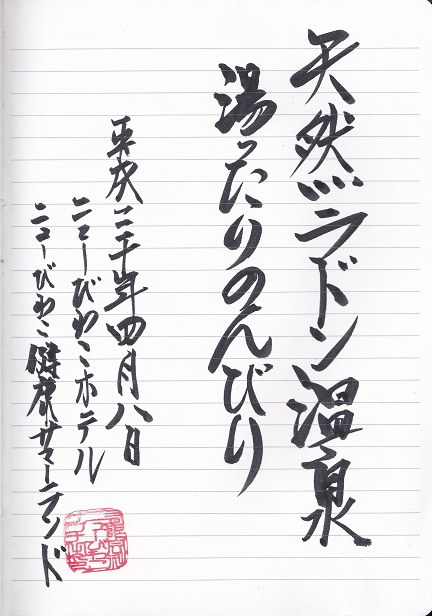 天然ラドン温泉
湯ったりのんびり
平成二十年四月八日
ニューびわこホテル
ニューびわこ健康サマーランド